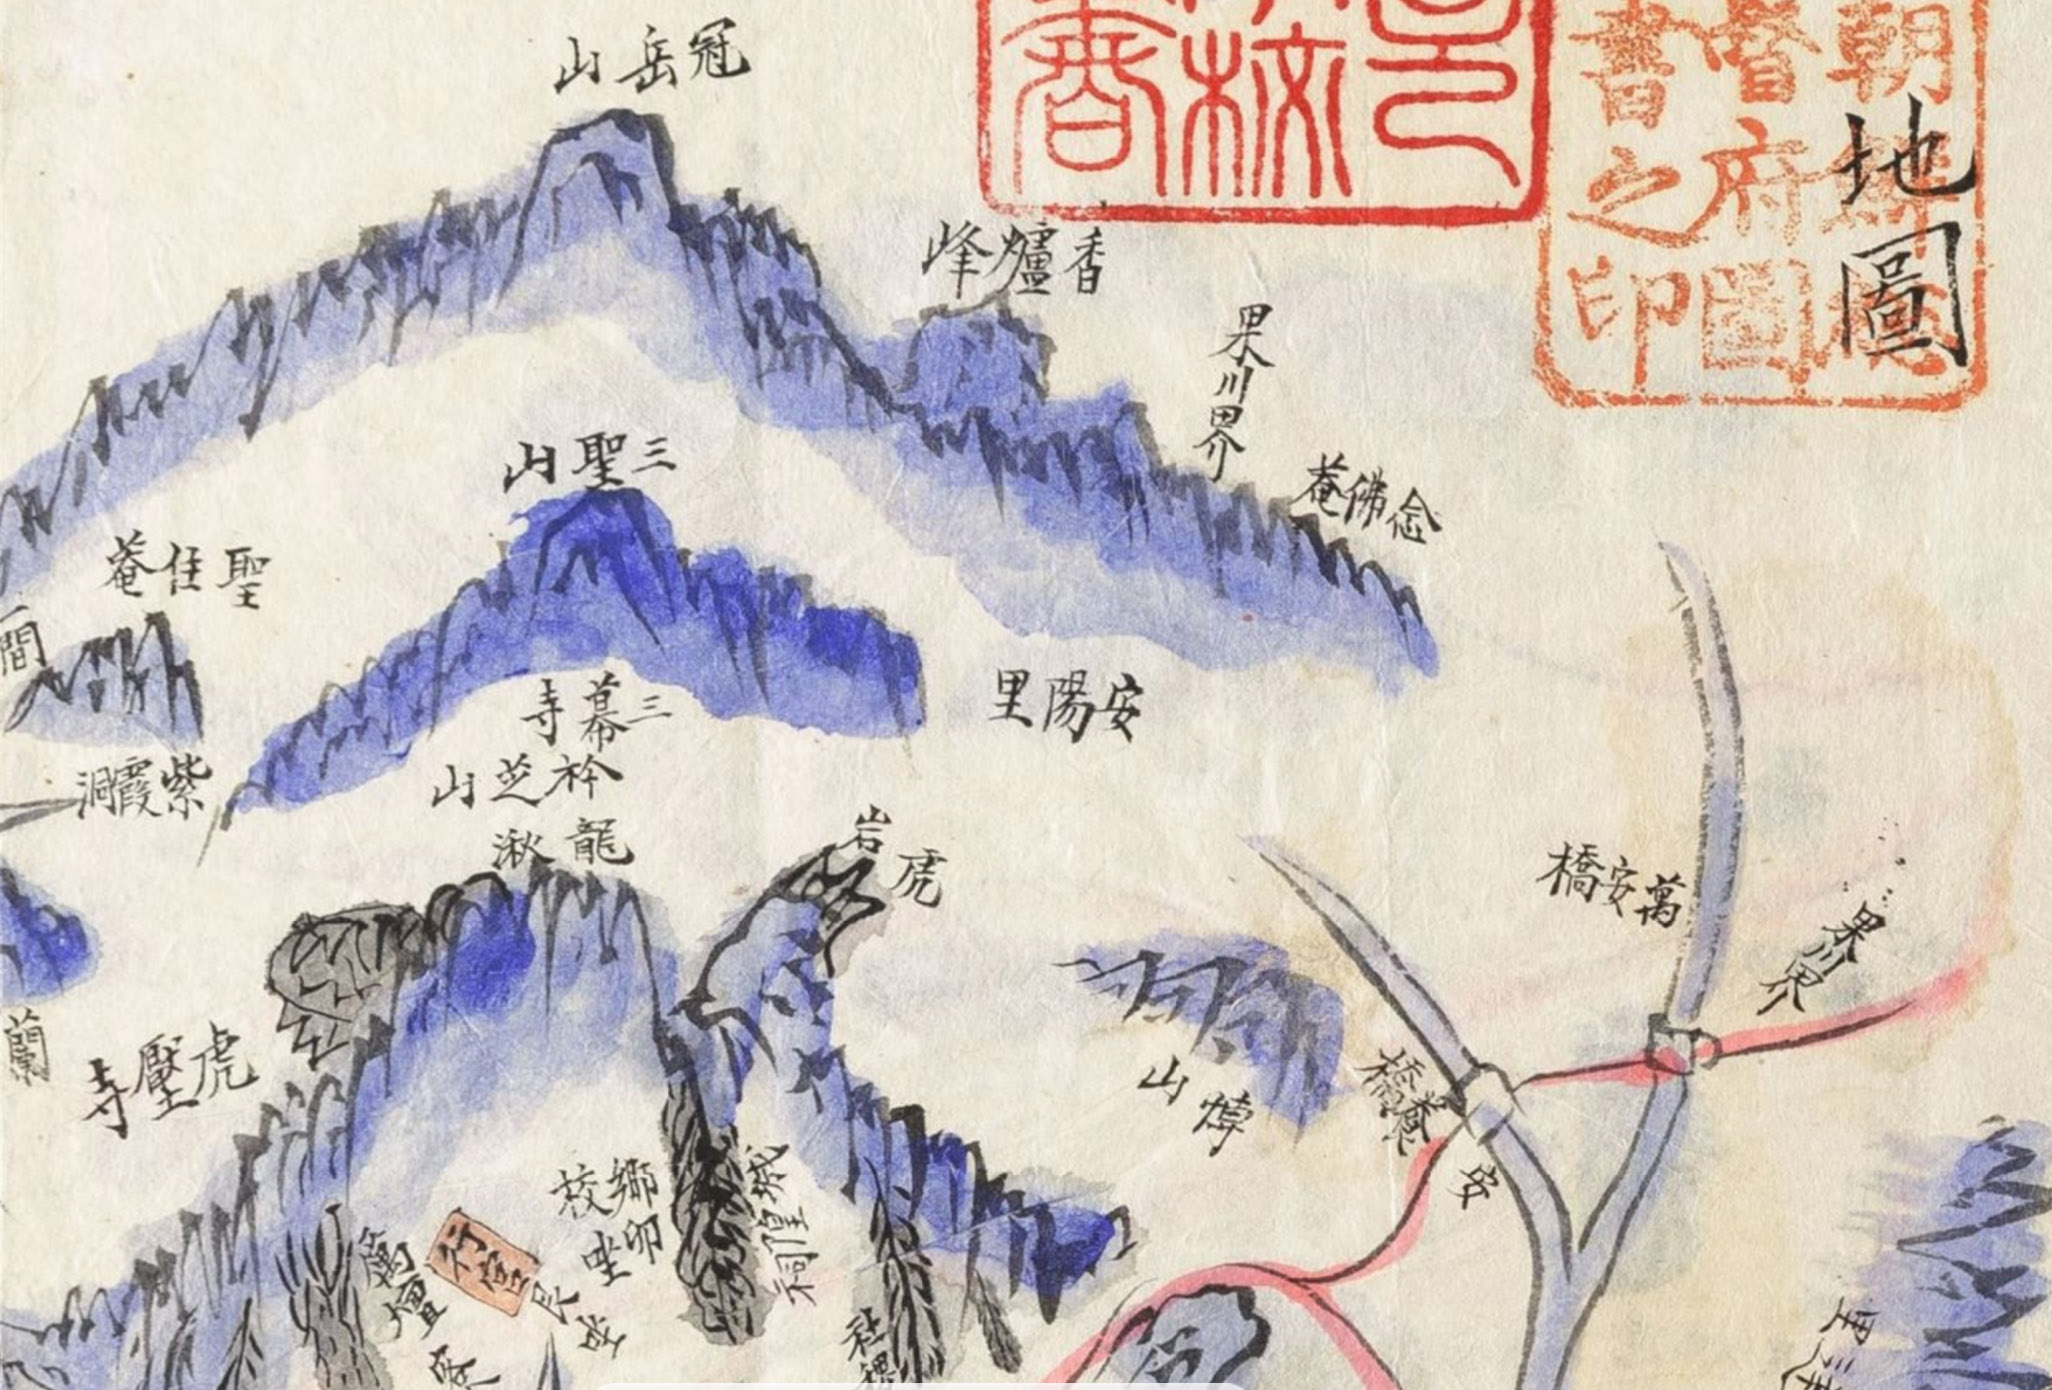 地圖
朝鮮總
督府圖
書之印
冠岳山
香爐峰
果川界
念佛菴
三聖山
聖住菴
間
安陽里
三幕寺
衿芝山
紫霞洞
龍湫
虎岩
萬安橋
果川界
蘭
虎壓寺
山
安養橋
鄕校
卯坐
城隍祠
行宮
艮坐
社稷